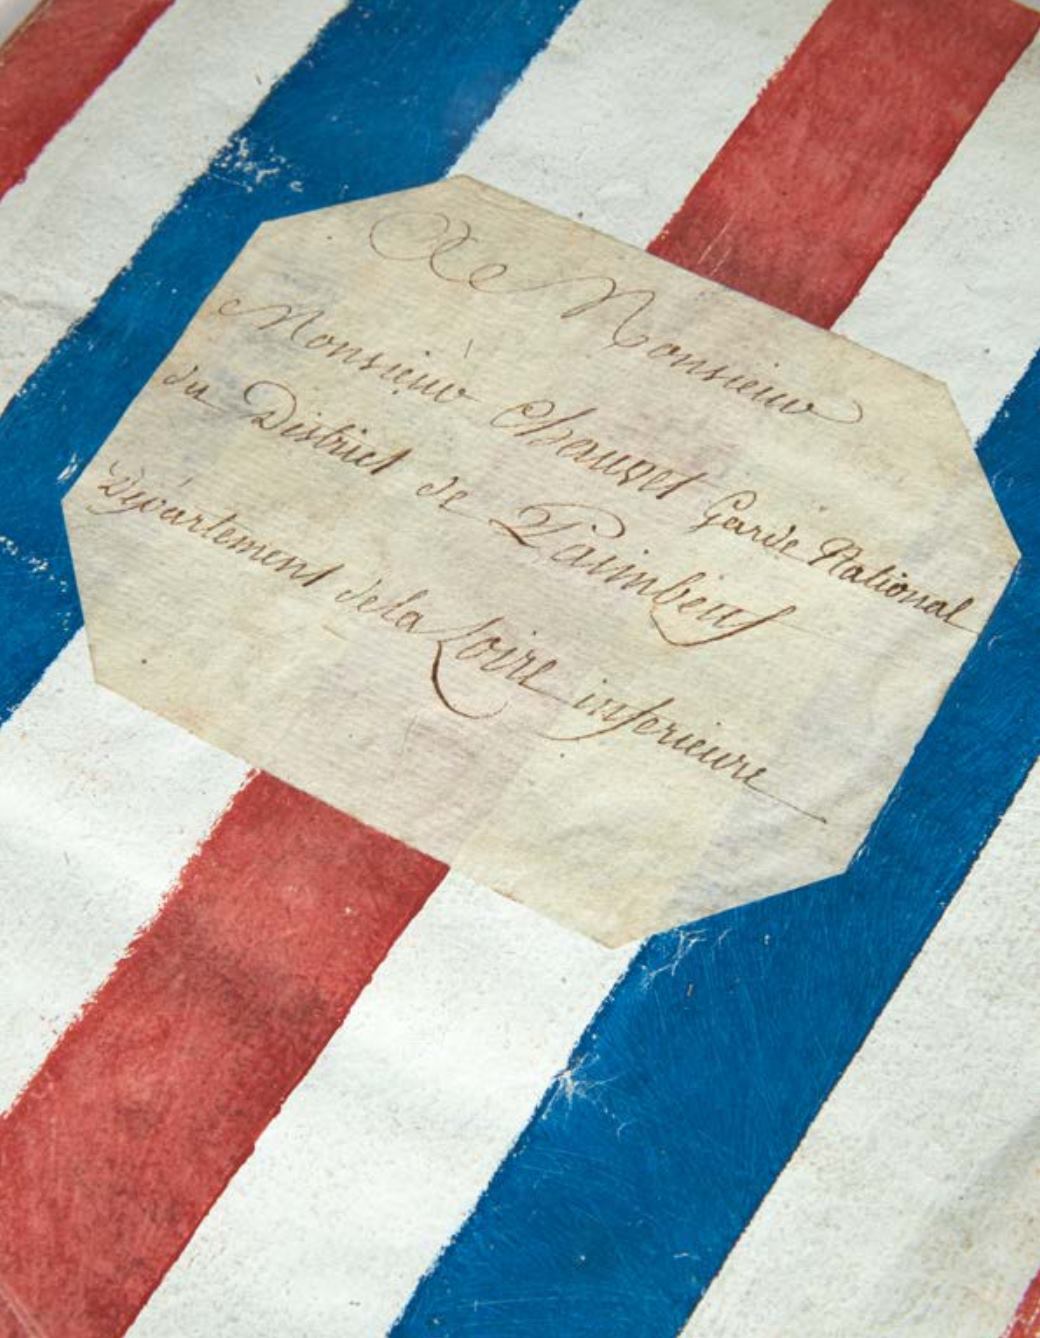 A Monsieur
Monsieur Chauvet Garde National
du District de Paimbeuf
Département de la Loire inferieure